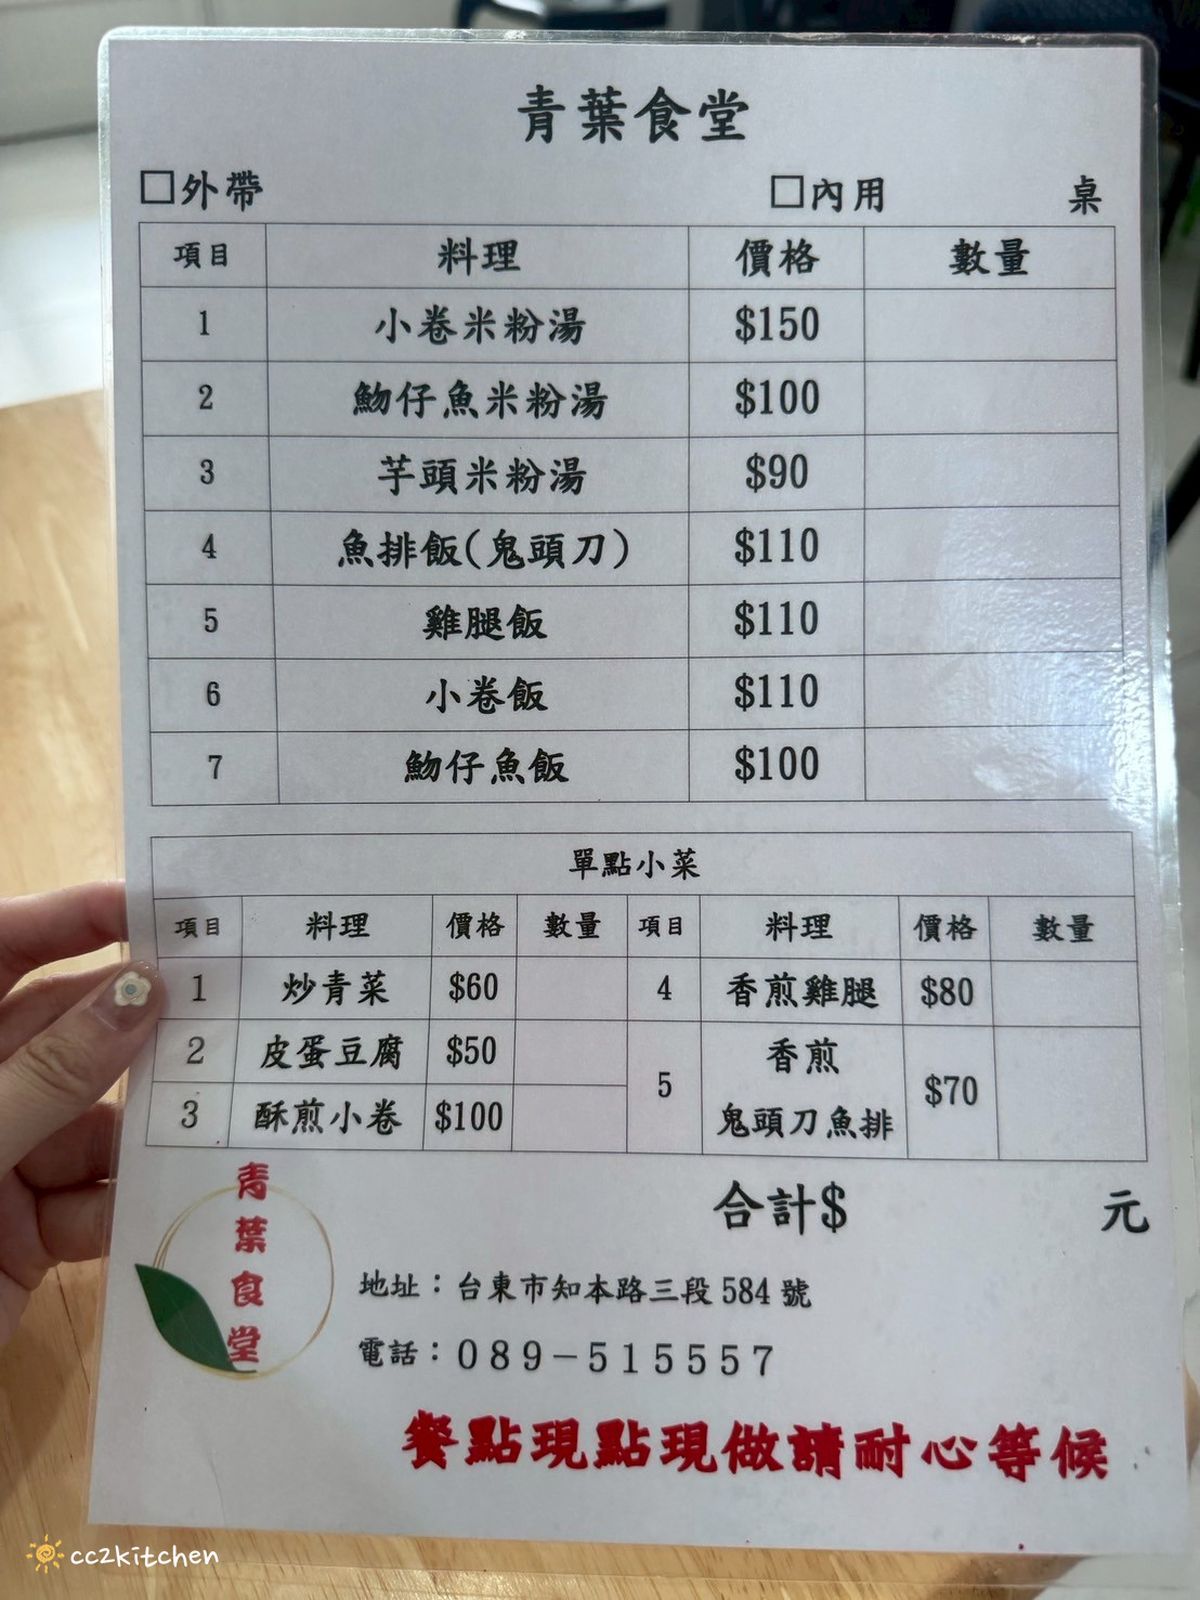 青葉食堂
□外帶 □內用 桌
項目 料理 價格 數量
1 小卷米粉湯 $150
2 魩仔魚米粉湯 $100
3 芋頭米粉湯 $90
4 魚排飯(鬼頭刀) $110
5 雞腿飯 $110
6 小卷飯 $110
7 魩仔魚飯 $100
單點小菜
項目 料理 價格 數量 項目 料理 價格 數量
1 炒青菜 $60 4 香煎雞腿 $80
2 皮蛋豆腐 $50 5 香煎 $70
3 酥煎小卷 $100 鬼頭刀魚排
合計$ 元
青葉食堂
地址：台東市知本路三段 584 號
電話：089－515557
餐點現點現做請耐心等候
cc2kitchen